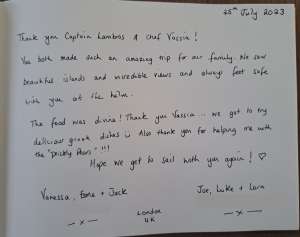 25th July 2023
Thank you Captain Lambros & chef Vassia!
You both made such an amazing trip for our family. We saw
beautiful islands and incredible views and always felt safe
with you at the helm.
The food was divine! Thank you Vassia .. we got to try
delicious greek dishes Also thank you for helping me with
the "Prickly Pears" !!!
Hope we get to sail with you again! ♡
Vanessa, + Jack
Joe, Luke + Lara
— x —
London
UK
— x —